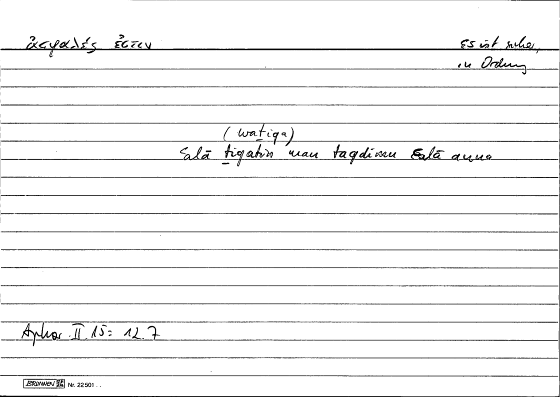 ἀσφαλές ἐστιν
Es ist sicher,
in Ordnung
(waṯiqa)
ʿalā ṯiqatin man taqdīman ʿalā anna
Aphor. II 15 = 12.7
BRUNNEN Nr. 22 501